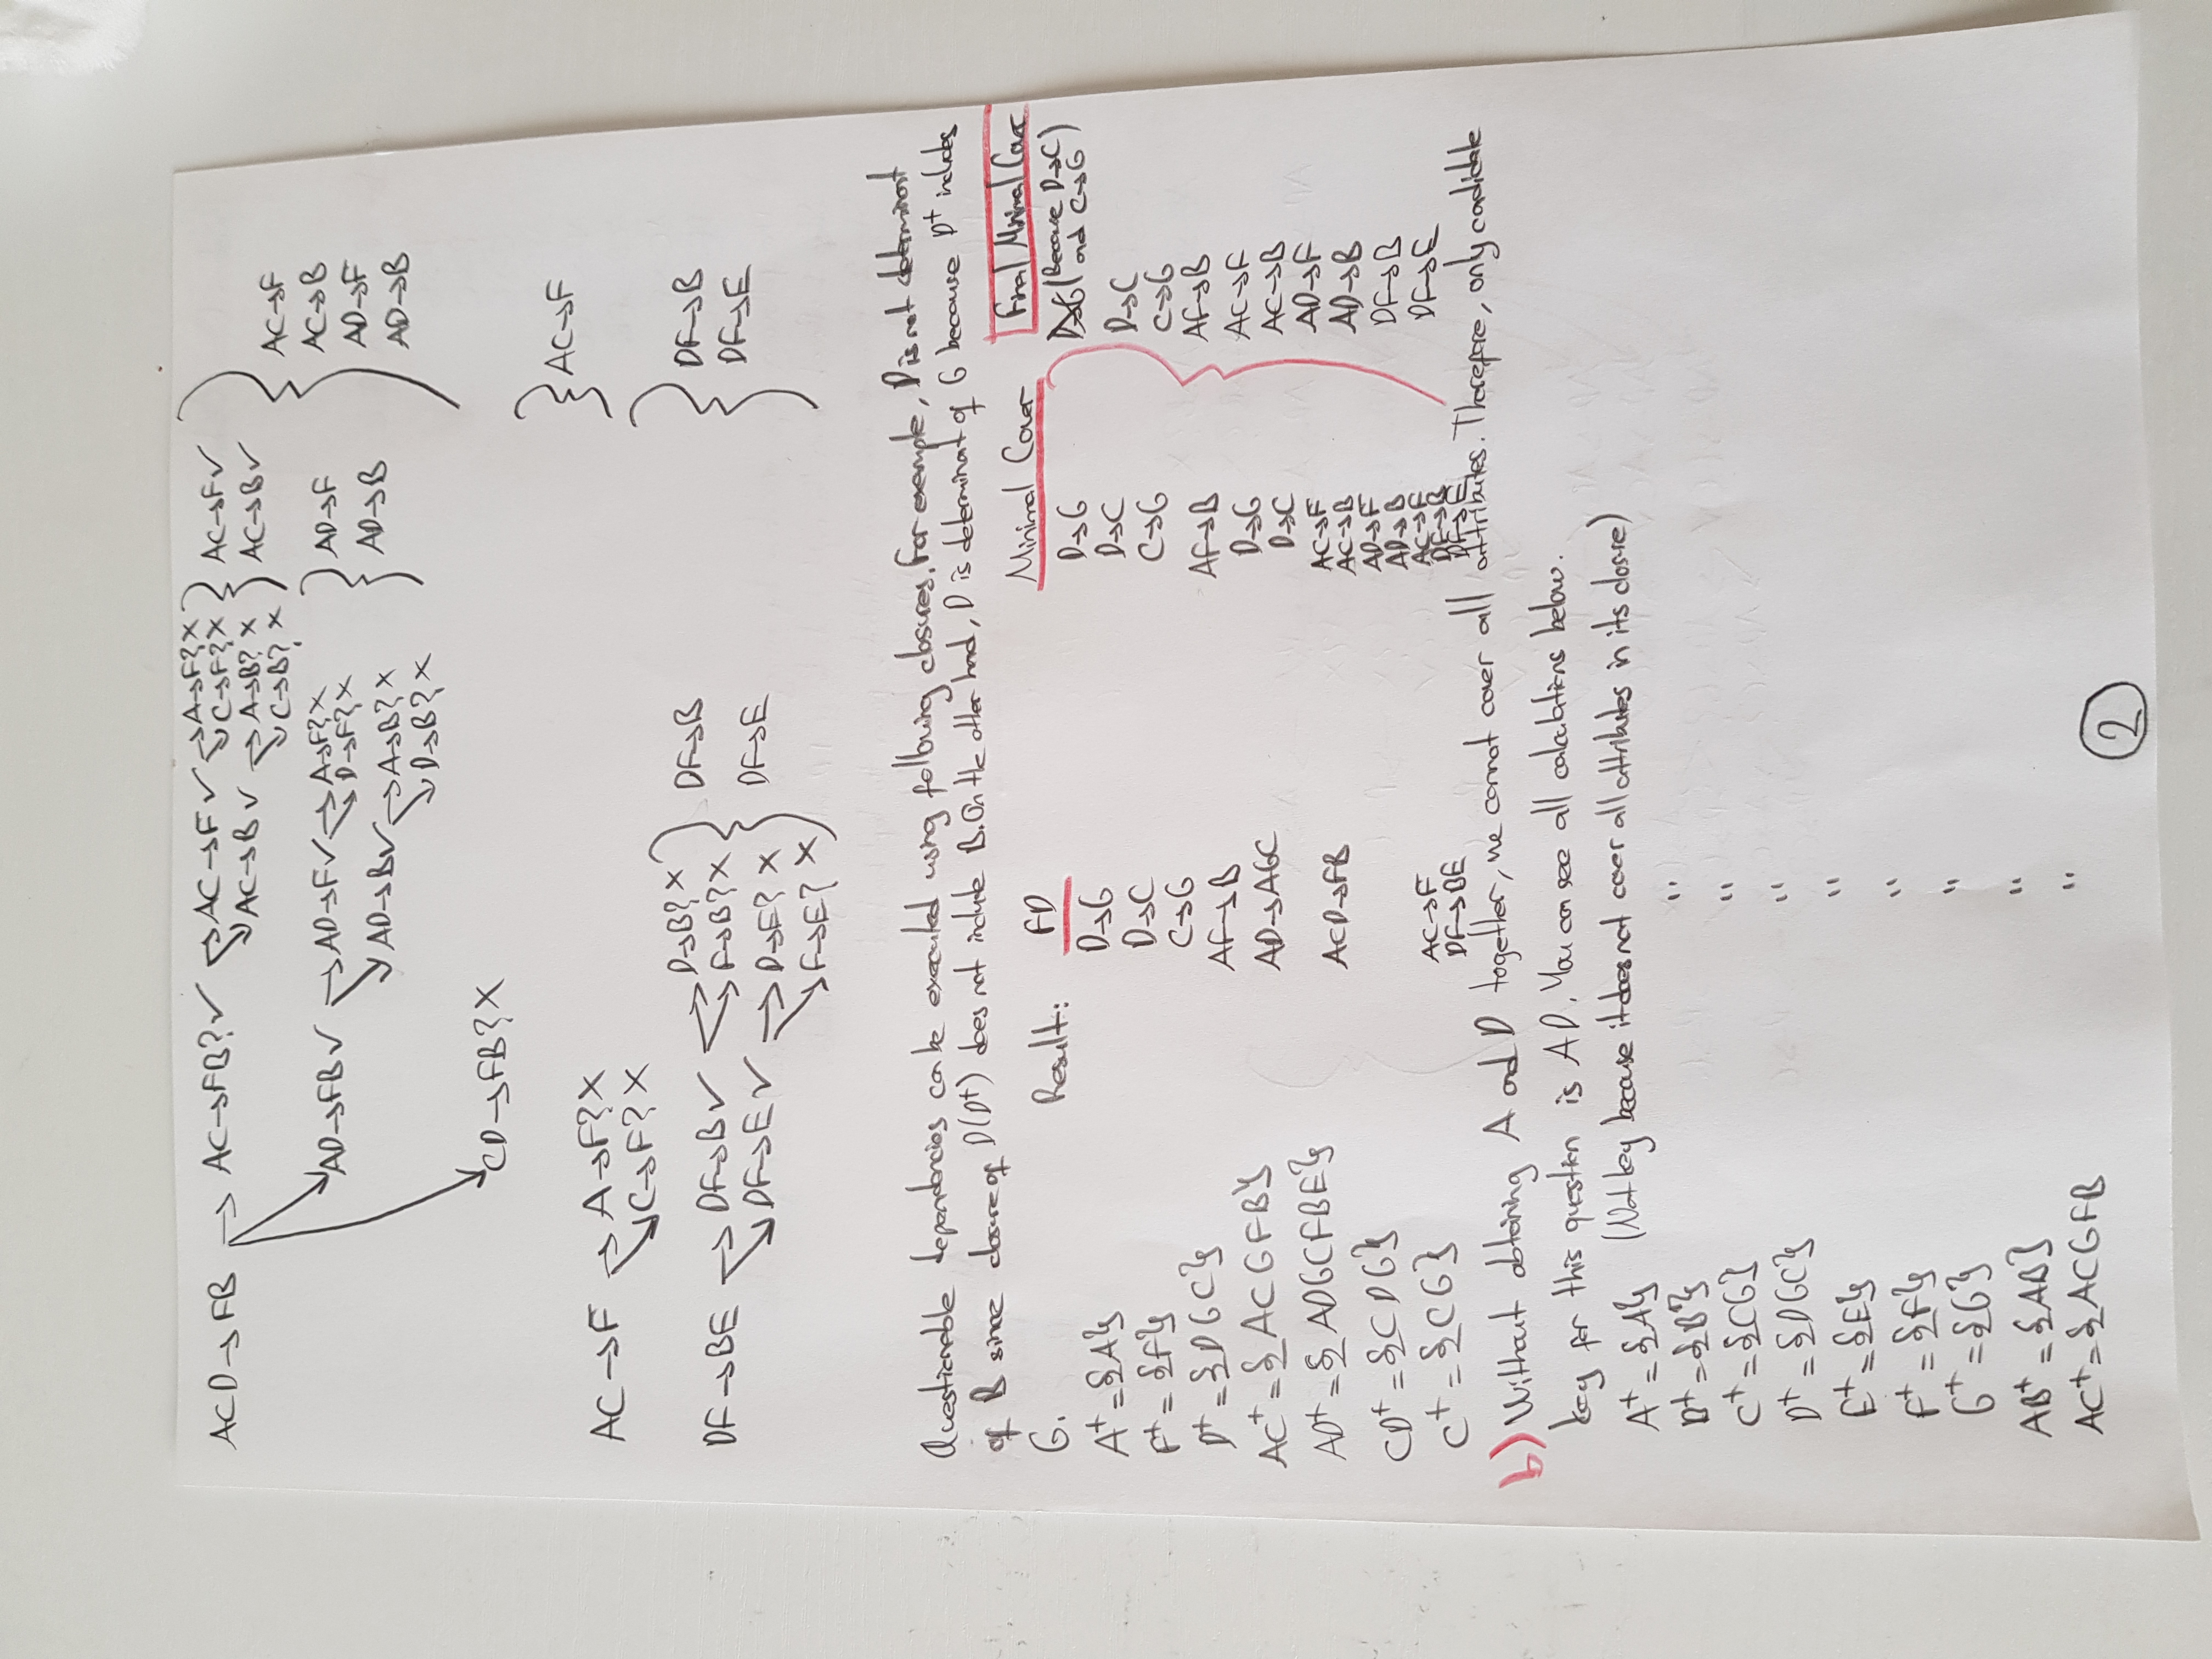 ACD→FB → AC→FB?✓ → AC→F✓ → A→F?X } AC→F✓
→ C→F?X
→ AC→B✓ → A→B?X AC→B✓
→ C→B?X
→ AD→FB✓ → AD→F✓ → A→F?X } AD→F
→ D→F?X
→ AD→B✓ → A→B?X AD→B
→ D→B?X
} AC→F
AC→B
AD→F
AD→B
→ CD→FB?X
AC→F → A→F?X } AC→F
→ C→F?X
DF→BE → DF→B✓ → D→B?X } DF→B } DF→B
→ F→B?X
→ DF→E✓ → D→E?X DF→E DF→E
→ F→E?X
Questionable dependencies can be executed using following closures. For example, D is not determinant
of B since closure of D(D⁺) does not include B. On the other hand, D is determinat of G because D⁺ includes
G.
Result: FD Minimal Cover Final Minimal Cover
A⁺={A}
F⁺={F}
D⁺={DGC}
AC⁺={ACGFB}
AD⁺={ADGCFBE}
CD⁺={CDG}
C⁺={CG}
D→G
D→C
C→G
AF→B
AD→AGC
ACD→FB
AC→F
DF→BE
D→G
D→C
C→G
AF→B
D→G
D→C
AC→F
AC→B
AD→F
AD→B
AC→F
DF→B
DF→E
D→G (Because D→C
and C→G)
D→C
C→G
AF→B
AC→F
AC→B
AD→F
AD→B
DF→B
DF→E
b) Without obtaining A and D together, we cannot cover all attributes. Therefore, only cadidate
key for this question is AD. You can see all calculations below.
A⁺={A} (Not key because it does not cover all attributes in its closure)
B⁺={B} "
C⁺={CG} "
D⁺={DGC} "
E⁺={E} "
F⁺={F} "
G⁺={G} "
AB⁺={AB} "
AC⁺={ACGFB "
2